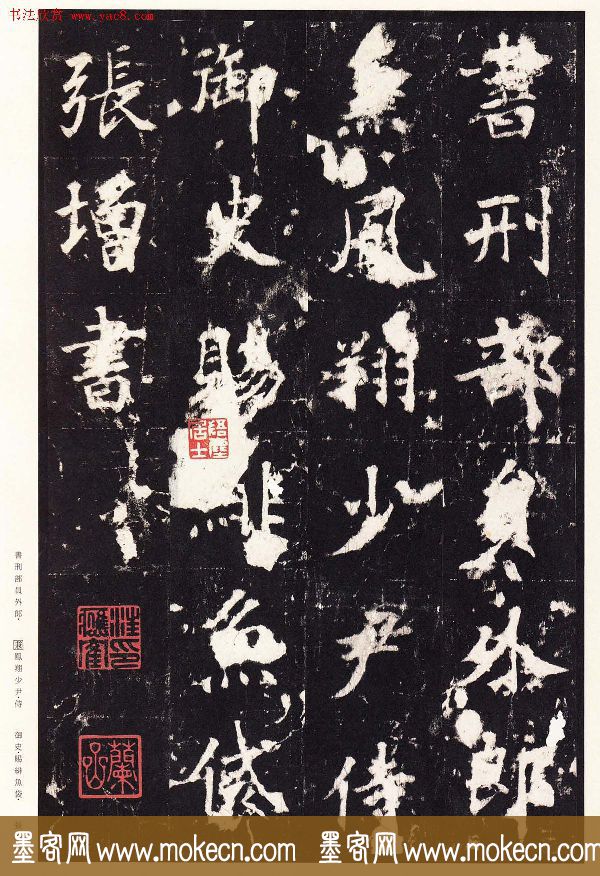 书法欣赏 www.yac8.com
書刑部員外郎
兼鳳翔少尹侍
御史賜緋魚袋
張增書
書刑部員外郎、
兼鳳翔少尹・侍
御史・賜緋魚袋・
蘭
墨客网 www.mokecn.com
墨客网 www.mokecn.com